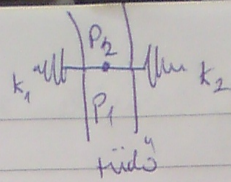 P₂
K₁ K₂
P₁
tüdő